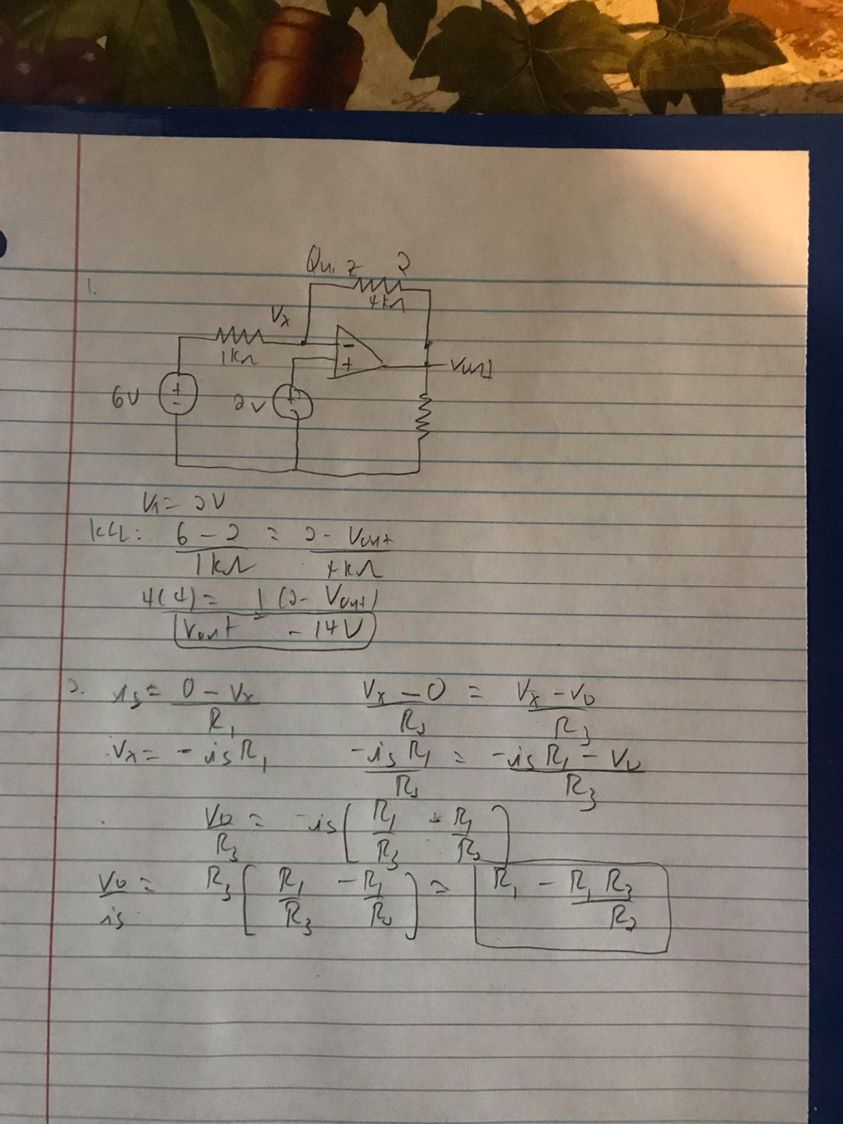 Quiz 2
1.
4kΩ
Vx
1kΩ
-
+
Vout
6V
+
-
2V
+
-
Vx = 2V
KCL: 6 - 2 / 1kΩ = 2 - Vout / 4kΩ
4(4) = 1(2 - Vout)
Vout = -14V
2. is = 0 - Vx / R1    Vx - 0 / R2 = Vx - Vo / R3
Vx = - is R1    -is R1 / R2 = -is R1 - Vo / R3
Vo / R3 = -is [ R1 / R3 - R1 / R2 ]
Vo / is = R3 [ R1 / R3 - R1 / R2 ] = R1 - R1 R3 / R2